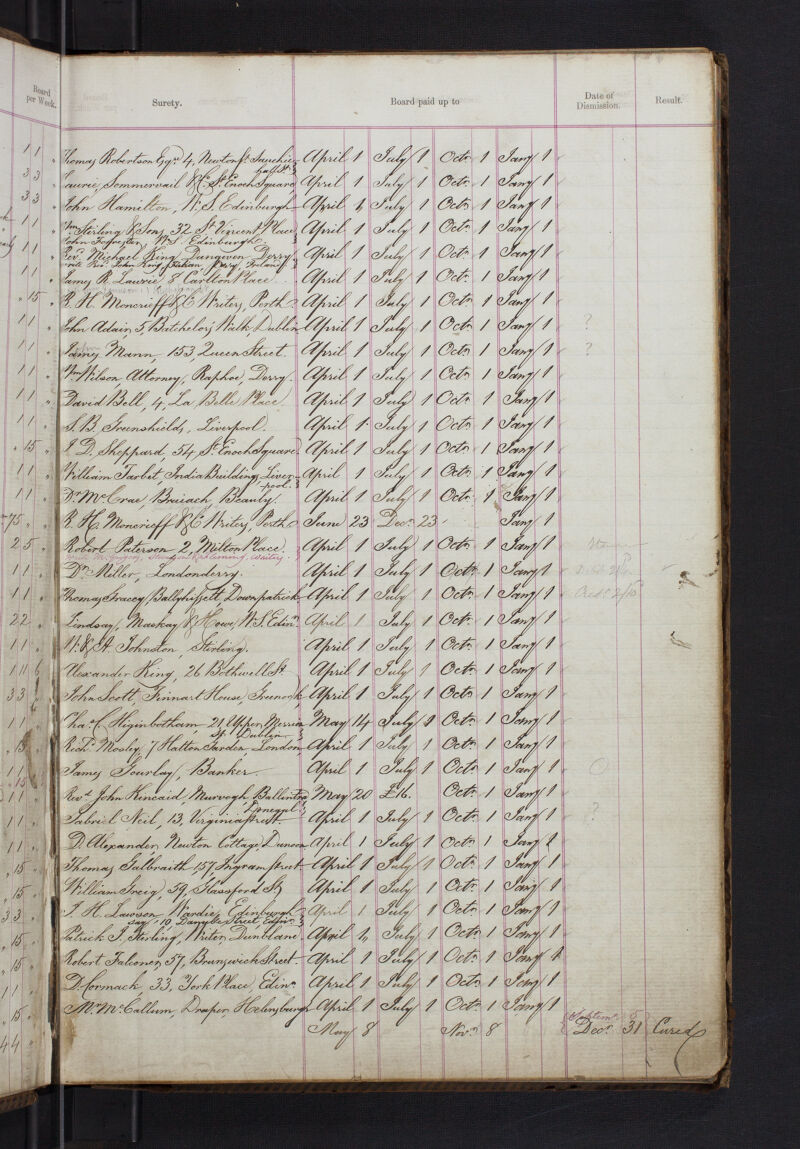 Board per Week. Surety. Board paid up to Date of Dismission. Result.
11 Thomas Robertson Esqr. 4, Newton St. Sauchie- April 1 July 1 Octr. 1 Jany 1
hall St.
33 Laurie, Sommervail & Co. St. Enoch Square April 1 July 1 Octr. 1 Jany 1
33 John Hamilton, W.S. Edinburgh April 1 July 1 Octr. 1 Jany 1
11 Wm. Stirling & Sons, 32 St. Vincent Place April 1 July 1 Octr. 1 Jany 1
John Forrester, W.S. Edinburgh
11 Revd. Michael King, Dungiven Derry April 1 July 1 Octr. 1 Jany 1
11 James R. Laurie 8 Carlton Place April 1 July 1 Octr. 1 Jany 1
15 R. H. Moncrieff & Co Writers, Perth April 1 July 1 Octr. 1 Jany 1
11 John Adair, 5, Batchelors Walk, Dublin April 1 July 1 Octr. 1 Jany 1 ?
11 James Mann, 153, Queen Street. April 1 July 1 Octr. 1 Jany 1 ?
11 Wm. Wilson Attorney, Raphoe, Derry. April 1 July 1 Octr. 1 Jany 1
11 David Bell, 4, La Belle Place April 1 July 1 Octr. 1 Jany 1
11 S. B. Greenshields, Liverpool. April 1 July 1 Octr. 1 Jany 1
15 J. D. Sheppard, 54 St. Enoch Square. April 1 July 1 Octr. 1 Jany 1
11 William Tarbet, India Building, Liver- April 1 July 1 Octr. 1 Jany 1
pool.
11 Dr. McCrae Bruiach Beauly. April 1 July 1 Octr. 1 Jany 1
75 R. H. Moncrieff & Co Writers, Perth June 23 Decr. 23 Jany 1
25 Robert Paterson 2, Milton Place. April 1 July 1 Octr. 1 Jany 1
11 Dr. Miller, Londonderry. April 1 July 1 Octr. 1 Jany 1
11 Thomas Gracey, Downpatrick April 1 July 1 Octr. 1 Jany 1
22 Lindsay, Mackay & Howe, W.S. Edinr. April 1 July 1 Octr. 1 Jany 1
11 W. & A. Johnston, Stirling. April 1 July 1 Octr. 1 Jany 1
11 6 Alexander King, 26 Bothwell St. April 1 July 1 Octr. 1 Jany 1
33 John Scott, Finnart House, Greenock, April 1 July 1 Octr. 1 Jany 1
11 Thos. Higinbotham, 21 Upper Merrion May 14 July 1 Octr. 1 Jany 1
St. Dublin
15 Richd. Mosley, 7 Hatton Garden, London, April 1 July 1 Octr. 1 Jany 1
11 James Gourlay, Banker April 1 July 1 Octr. 1 Jany 1
15 Revd. John Kincaid, Murvogh Ballintra May 20 £16. Octr. 1 Jany 1
Donegal
11 Gabriel Neil, 13, Virginia Street April 1 July 1 Octr. 1 Jany 1 ?
11 D. Alexander, Newton Cottage, Dunoon April 1 July 1 Octr. 1 Jany 1
15 Thomas Galbraith 157 Ingram Street April 1 July 1 Octr. 1 Jany 1
15 William Greig, 59, Glassford St. April 1 July 1 Octr. 1 Jany 1
33 J. H. Lawson, Wardie, Edinburgh April 1 July 1 Octr. 1 Jany 1
10 Danube Street Edinr.
15 Patrick J. Stirling, Writer, Dunblane April 1 July 1 Octr. 1 Jany 1
15 Robert Falconer, 57, Brunswick Street. April 1 July 1 Octr. 1 Jany 1
11 D. Cormack, 33, York Place, Edinr. April 1 July 1 Octr. 1 Jany 1
15 McCallum, Draper, Helensburgh April 1 July 1 Octr. 1 Jany 1
44 May 8 Novr. 8 Decr. 31 Cured